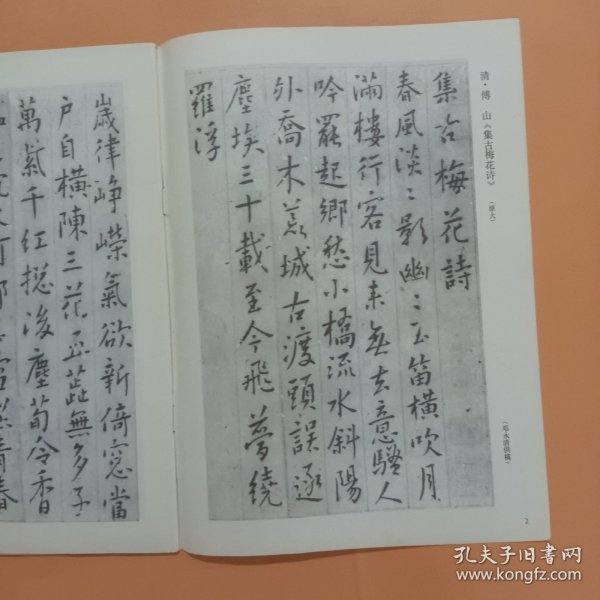 清·傅 山《集古梅花诗》
(原大)
集古梅花詩
春風淡〻影幽〻玉笛橫吹月
滿樓行客見来無去意騷人
吟罷起鄉愁小橋流水斜陽
外喬木荒城古渡頭誤逐
塵埃三十載至今飛夢繞
羅浮
2
歲律崢嶸氣欲新倚窓當
户自橫陳三花五蕋無多子
萬紫千紅摠後塵荀令香
孔夫子旧书网
www.kongfz.com